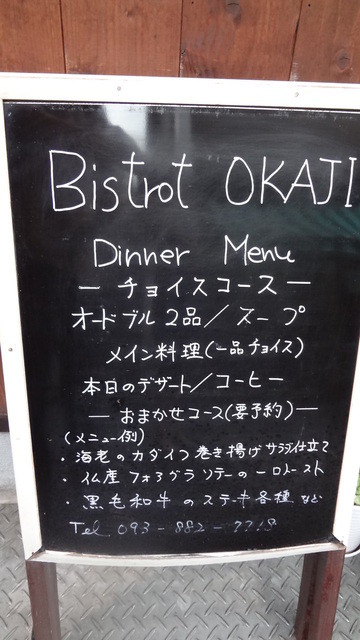 Bistrot OKAJI
Dinner Menu
― チョイスコース ―
オードブル2品/スープ
メイン料理(一品チョイス)
本日のデザート/コーヒー
― おまかせコース(要予約) ―
(メニュー例)
・海老のカダイフ巻き揚げサラダ仕立て
・仏産フォアグラソテーの
・黒毛和牛のステーキ各種など
Tel 093-882-7718